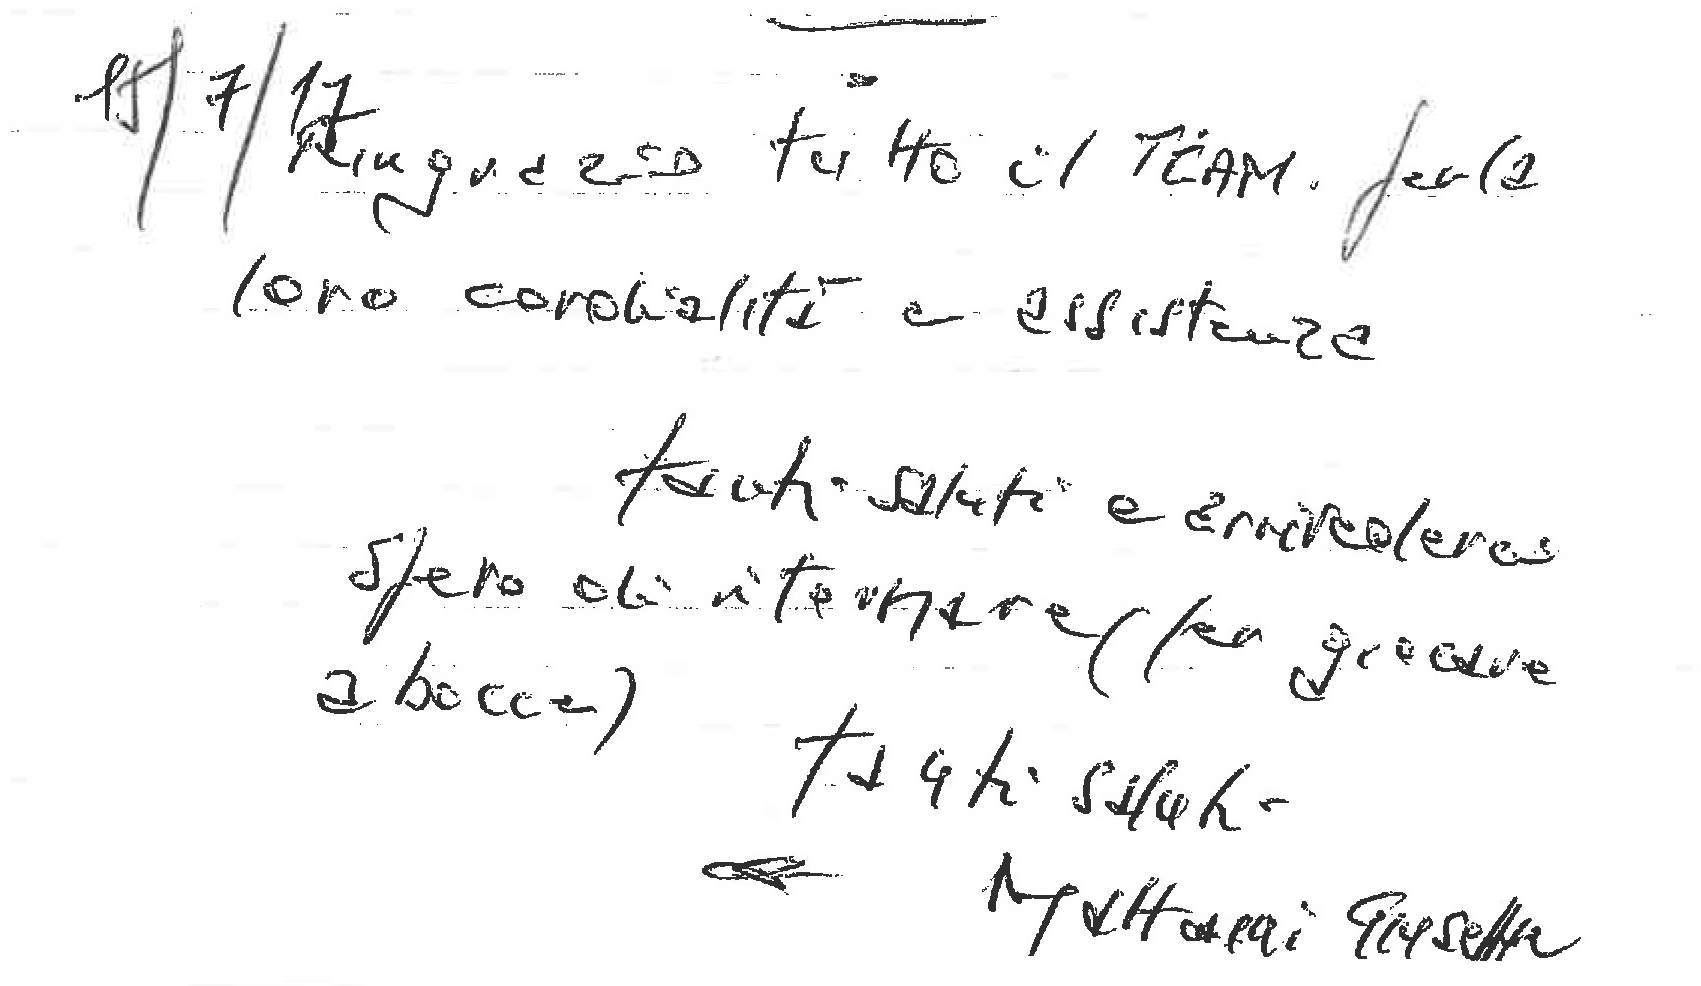 15/7/17
Ringrazio tutto il TEAM. per la
loro cordialità e assistenza
tanti saluti e arrivederci
spero di ritornare (per
a bocca)
tanti saluti